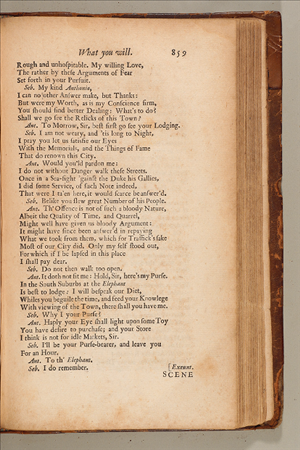 What you will. 859
Rough and unhospitable. My willing Love,
The rather by these Arguments of Fear
Set forth in your Pursuit.
Seb. My kind Anthonio,
I can no other Answer make, but Thanks:
But were my Worth, as is my Conscience firm,
You should find better Dealing: What's to do?
Shall we go see the Relicks of this Town?
Ant. To Morrow, Sir, best first go see your Lodging.
Seb. I am not weary, and 'tis long to Night,
I pray you let us satisfie our Eyes
With the Memorials, and the Things of Fame
That do renown this City.
Ant. Would you'ld pardon me:
I do not without Danger walk these Streets.
Once in a Sea-fight 'gainst the Duke his Gallies,
I did some Service, of such Note indeed,
That were I ta'en here, it would scarce be answer'd.
Seb. Belike you slew great Number of his People.
Ant. Th' Offence is not of such a bloody Nature,
Albeit the Quality of Time, and Quarrel,
Might well have given us bloody Argument:
It might have since been answer'd in repaying
What we took from them, which for Traffick's sake
Most of our City did. Only my self stood out,
For which if I be lapsed in this place
I shall pay dear.
Seb. Do not then walk too open.
Ant. It doth not fit me: Hold, Sir, here's my Purse.
In the South Suburbs at the Elephant
Is best to lodge: I will bespeak our Diet,
Whiles you beguile the time, and feed your Knowlege
With viewing of the Town, there shall you have me.
Seb. Why I your Purse?
Ant. Haply your Eye shall light upon some Toy
You have desire to purchase; and your Store
I think is not for idle Markets, Sir.
Seb. I'll be your Purse-bearer, and leave you
For an Hour.
Ant. To th' Elephant.
Seb. I do remember. [Exeunt.
SCENE